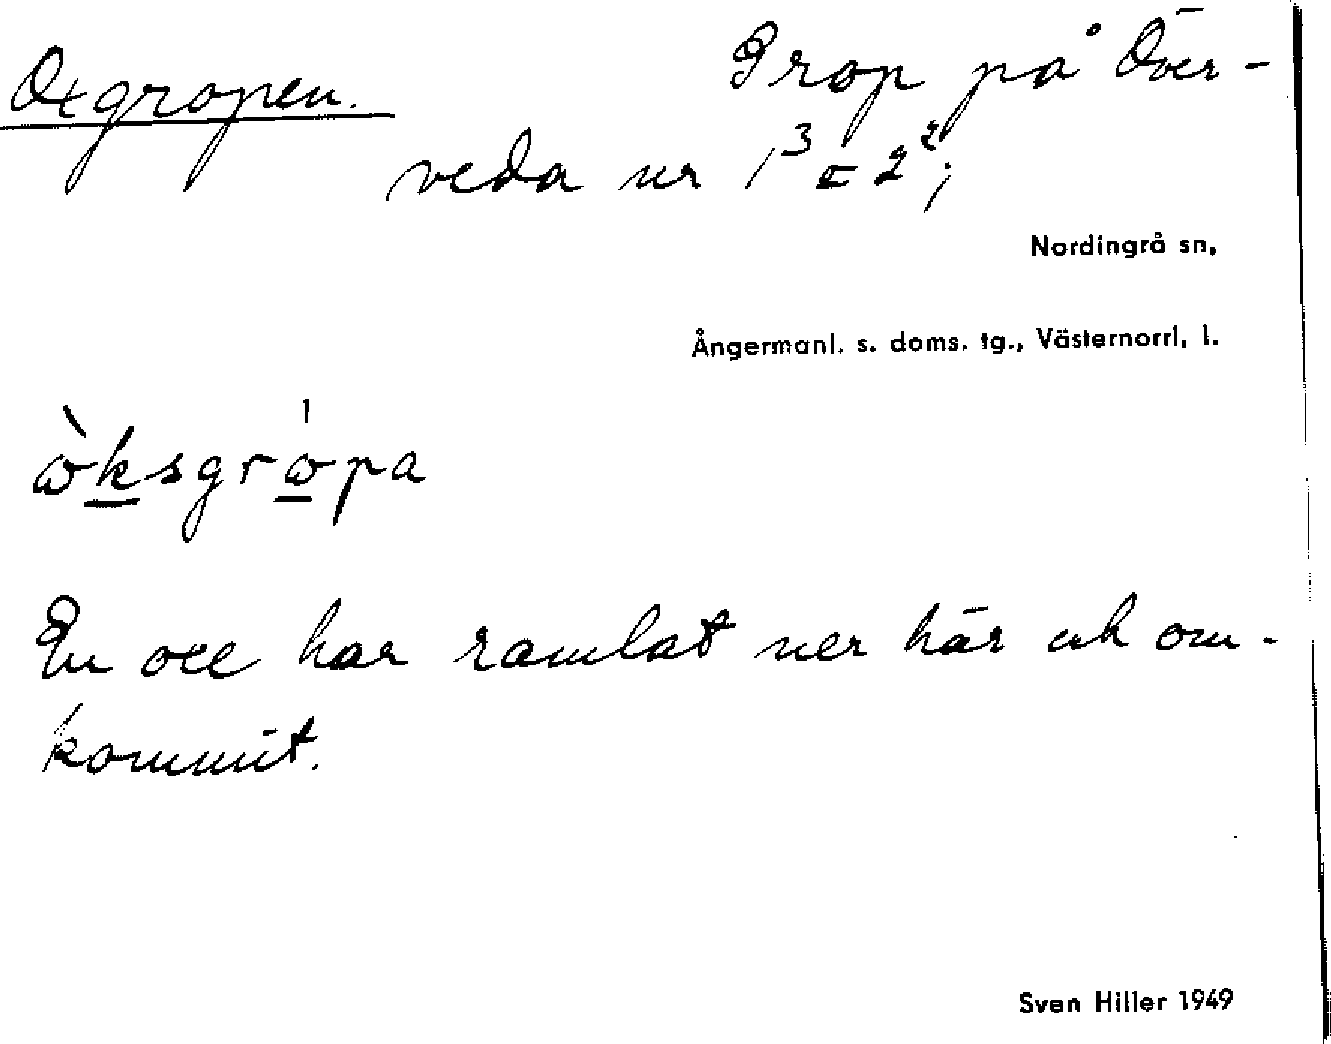 Oxgropen. Grop på Över-
veda nr 1³ = 2²;
Nordingrå sn,
Ångermanl. s. doms. tg., Västernorrl. l.
ὼksgrώpa
En oxe har ramlat ner här och om-
kommit.
Sven Hiller 1949